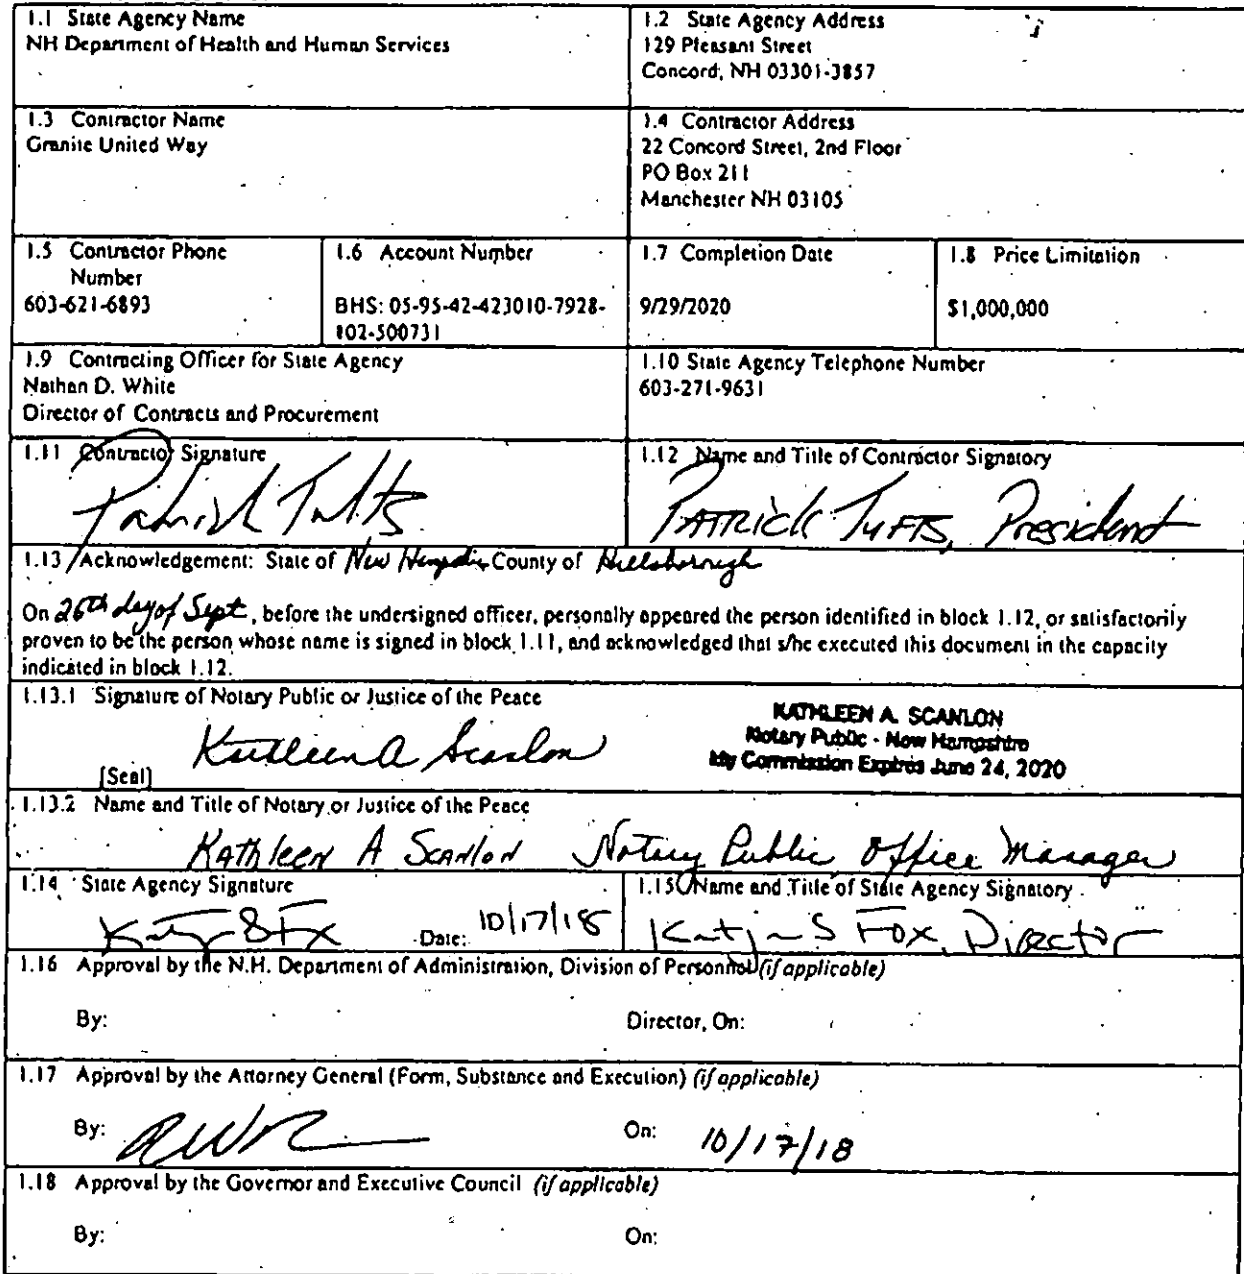 1.1 State Agency Name
NH Department of Health and Human Services
1.2 State Agency Address
129 Pleasant Street
Concord, NH 03301-3857
1.3 Contractor Name
Granite United Way
1.4 Contractor Address
22 Concord Street, 2nd Floor
PO Box 211
Manchester NH 03105
1.5 Contractor Phone
Number
603-621-6893
1.6 Account Number
BHS: 05-95-42-423010-7928-
102-500731
1.7 Completion Date
9/29/2020
1.8 Price Limitation
$1,000,000
1.9 Contracting Officer for State Agency
Nathan D. White
Director of Contracts and Procurement
1.10 State Agency Telephone Number
603-271-9631
1.11 Contractor Signature
Patrick Tufts
1.12 Name and Title of Contractor Signatory
PATRICK TUFTS, President
1.13 Acknowledgement: State of New Hampshire County of Hillsborough
On 26th day of Sept, before the undersigned officer, personally appeared the person identified in block 1.12, or satisfactorily
proven to be the person whose name is signed in block 1.11, and acknowledged that s/he executed this document in the capacity
indicated in block 1.12.
1.13.1 Signature of Notary Public or Justice of the Peace
Kathleen A Scanlon
[Seal]
KATHLEEN A. SCANLON
Notary Public - New Hampshire
My Commission Expires June 24, 2020
1.13.2 Name and Title of Notary or Justice of the Peace
Kathleen A Scanlon Notary Public Office Manager
1.14 State Agency Signature
Date: 10/17/18
1.15 Name and Title of State Agency Signatory
Katja S Fox, Director
1.16 Approval by the N.H. Department of Administration, Division of Personnel (if applicable)
By:
Director, On:
1.17 Approval by the Attorney General (Form, Substance and Execution) (if applicable)
By:
On: 10/17/18
1.18 Approval by the Governor and Executive Council (if applicable)
By:
On: